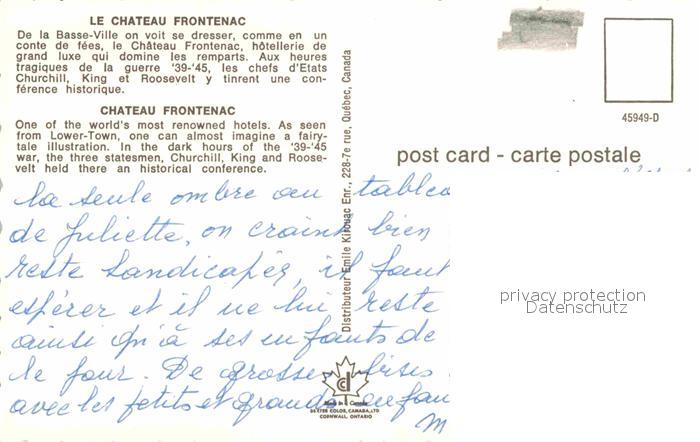 LE CHATEAU FRONTENAC
De la Basse-Ville on voit se dresser, comme en un
conte de fées, le Château Frontenac, hôtellerie de
grand luxe qui domine les remparts. Aux heures
tragiques de la guerre '39-'45, les chefs d'Etats
Churchill, King et Roosevelt y tinrent une con-
férence historique.
CHATEAU FRONTENAC
One of the world's most renowned hotels. As seen
from Lower-Town, one can almost imagine a fairy-
tale illustration. In the dark hours of the '39-'45
war, the three statesmen, Churchill, King and Roose-
velt held there an historical conference.
la seule ombre au tableau
de Juliette, on craint bien
reste handicapée, il faut
espérer et il ne lui reste
ainsi qu'à ses enfants de
le four. De grosses bises
avec les petits et grands
M
Distributeur Emile Kirouac Enr., 228-7e rue, Québec, Canada
Made in Canada
DEXTER COLOR, CANADA, LTD
CORNWALL, ONTARIO
45949-D
post card - carte postale
privacy protection
Datenschutz